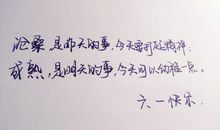 沧桑,是昨天的事,今天要打起精神.
成熟,是明天的事,今天可以幼稚一点.
六一快乐.